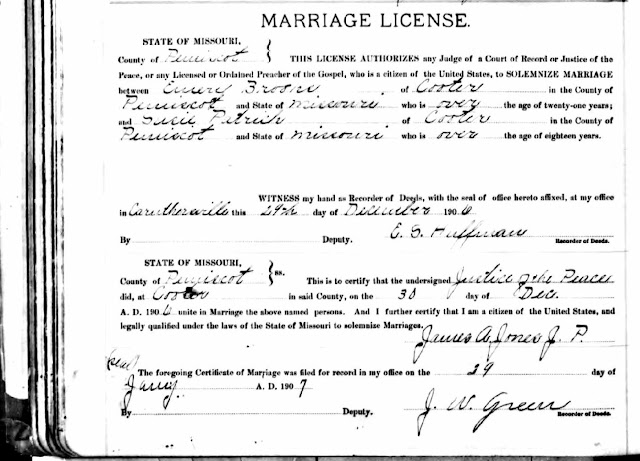 MARRIAGE LICENSE.
STATE OF MISSOURI,
County of Pemiscot } THIS LICENSE AUTHORIZES any Judge of a Court of Record or Justice of the
Peace, or any Licensed or Ordained Preacher of the Gospel, who is a citizen of the United States, to SOLEMNIZE MARRIAGE
between Emery of Cooter in the County of
Pemiscot and State of Missouri who is over the age of twenty-one years;
and of Cooter in the County of
Pemiscot and State of Missouri who is over the age of eighteen years.
WITNESS my hand as Recorder of Deeds, with the seal of office hereto affixed, at my office
in Caruthersville this 29th day of December 1906
By Deputy. E. S. Huffman Recorder of Deeds.
STATE OF MISSOURI,
County of Pemiscot } ss. This is to certify that the undersigned Justice of the Peace
did, at Cooter in said County, on the 30 day of Dec.
A. D. 1906 unite in Marriage the above named persons. And I further certify that I am a citizen of the United States, and
legally qualified under the laws of the State of Missouri to solemnize Marriages.
James A. Jones J. P.
(seal)
The foregoing Certificate of Marriage was filed for record in my office on the 29 day of
Jany A. D. 1907
By Deputy. J. W. Green Recorder of Deeds.